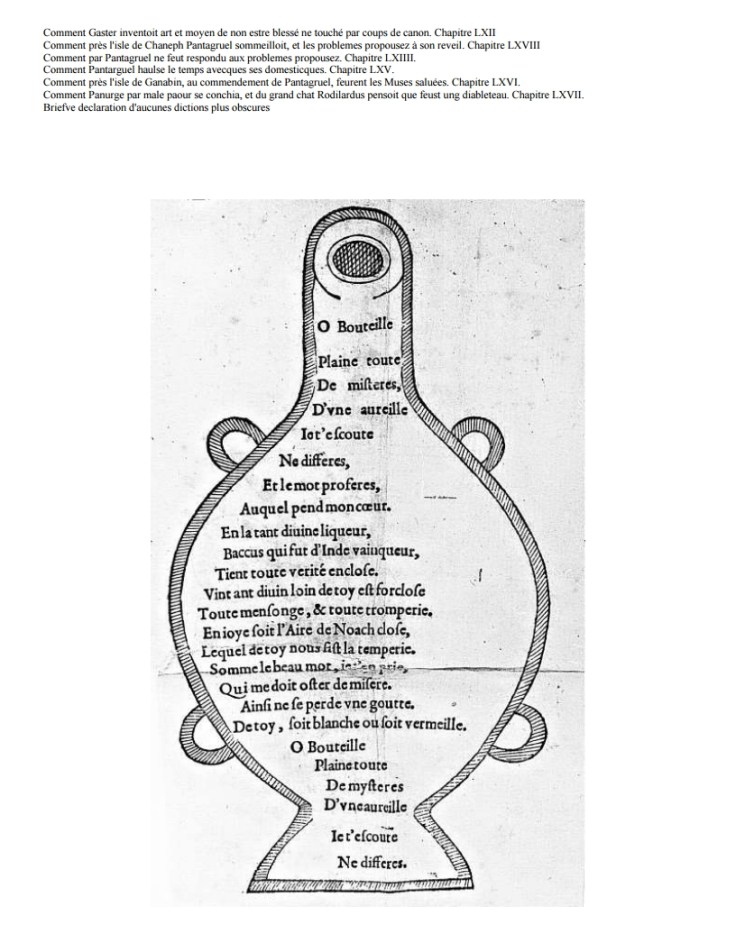 Comment Gaster inventoit art et moyen de non estre blessé ne touché par coups de canon. Chapitre LXII
Comment près l'isle de Chaneph Pantagruel sommeilloit, et les problemes propousez à son reveil. Chapitre LXVIII
Comment par Pantagruel ne feut respondu aux problemes propousez. Chapitre LXIIII.
Comment Pantarguel haulse le temps avecques ses domesticques. Chapitre LXV.
Comment près l'isle de Ganabin, au commendement de Pantagruel, feurent les Muses saluées. Chapitre LXVI.
Comment Panurge par male paour se conchia, et du grand chat Rodilardus pensoit que feust ung diableteau. Chapitre LXVII.
Briefve declaration d'aucunes dictions plus obscures
O Bouteille
Plaine toute
De miſteres,
D'vne aureille
Iet'eſcoute
Ne differes,
Et le mot proferes,
Auquel pend mon cœur.
En la tant diuine liqueur,
Baccus qui fut d'Inde vainqueur,
Tient toute verité encloſe.
Vint ant diuin loin de toy eſt forcloſe
Toute menſonge, & toute tromperie.
En ioye ſoit l'Aire de Noach cloſe,
Lequel de toy nous fiſt la temperie.
Somme le beau mot, ie t'en prie,
Qui me doit oſter de miſere.
Ainſi ne ſe perde vne goutte.
De toy, ſoit blanche ou ſoit vermeille.
O Bouteille
Plaine toute
De myſteres
D'vne aureille
Ie t'eſcoute
Ne differes.